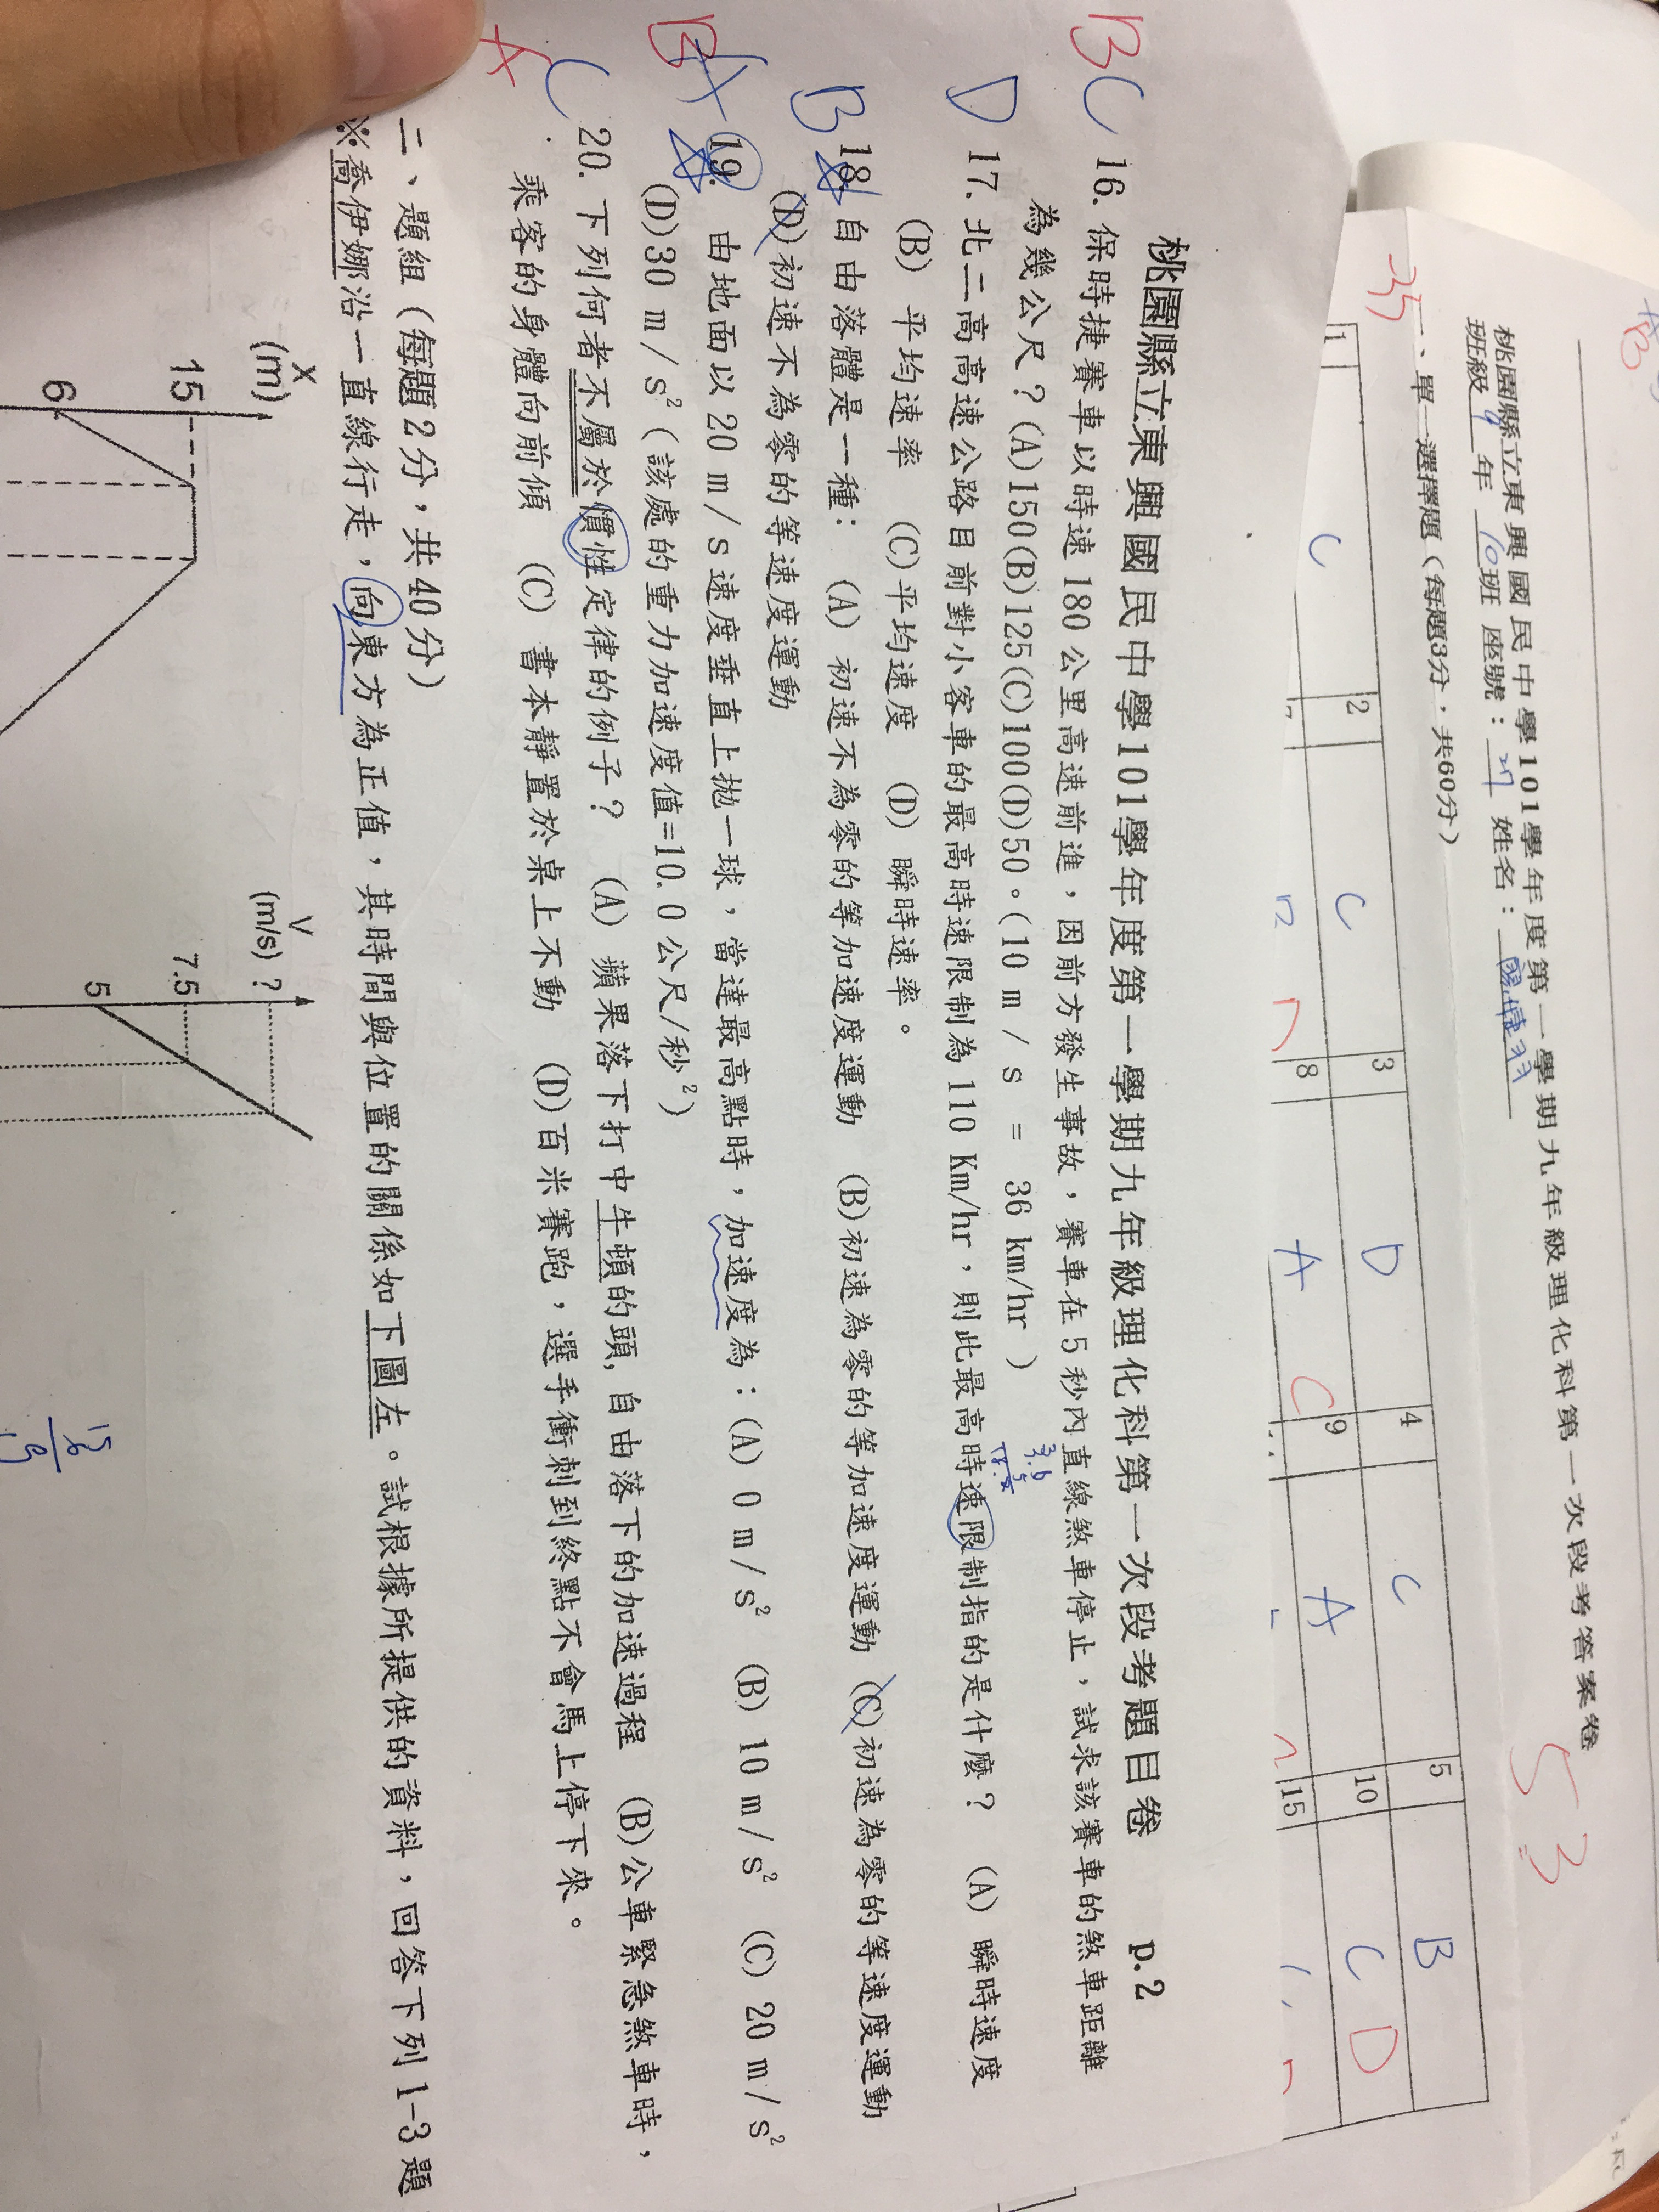 桃園縣立東興國民中學101學年度第一學期九年級理化科第一次段考答案卷
53
班級 9 年 10 班 座號：27 姓名：
35
一、單一選擇題（每題3分，共60分）
1 2 3 4 5
C C D C B
8 9 10
A C A C D
15
桃園縣立東興國民中學101學年度第一學期九年級理化科第一次段考題目卷 p.2
BC 16. 保時捷賽車以時速180公里高速前進，因前方發生事故，賽車在5秒內直線煞車停止，試求該賽車的煞車距離
為幾公尺？(A)150(B)125(C)100(D)50。(10 m / s = 36 km/hr )
D 17. 北二高高速公路目前對小客車的最高時速限制為110 Km/hr，則此最高時速限制指的是什麼？ (A) 瞬時速度
(B) 平均速率 (C)平均速度 (D) 瞬時速率。
B 18. 自由落體是一種： (A) 初速不為零的等加速度運動 (B)初速為零的等加速度運動 (C)初速為零的等速度運動
(D)初速不為零的等速度運動
BA 19. 由地面以20 m / s速度垂直上拋一球，當達最高點時，加速度為：(A) 0 m / s² (B) 10 m / s² (C) 20 m / s²
(D)30 m / s²（該處的重力加速度值=10.0公尺/秒²）
AC 20. 下列何者不屬於慣性定律的例子？ (A) 蘋果落下打中牛頓的頭,自由落下的加速過程 (B)公車緊急煞車時，
乘客的身體向前傾 (C) 書本靜置於桌上不動 (D)百米賽跑，選手衝刺到終點不會馬上停下來。
二、題組（每題2分，共40分）
※喬伊娜沿一直線行走，向東方為正值，其時間與位置的關係如下圖左。試根據所提供的資料，回答下列1-3題
X
(m)
15
6
V
(m/s)
?
7.5
5